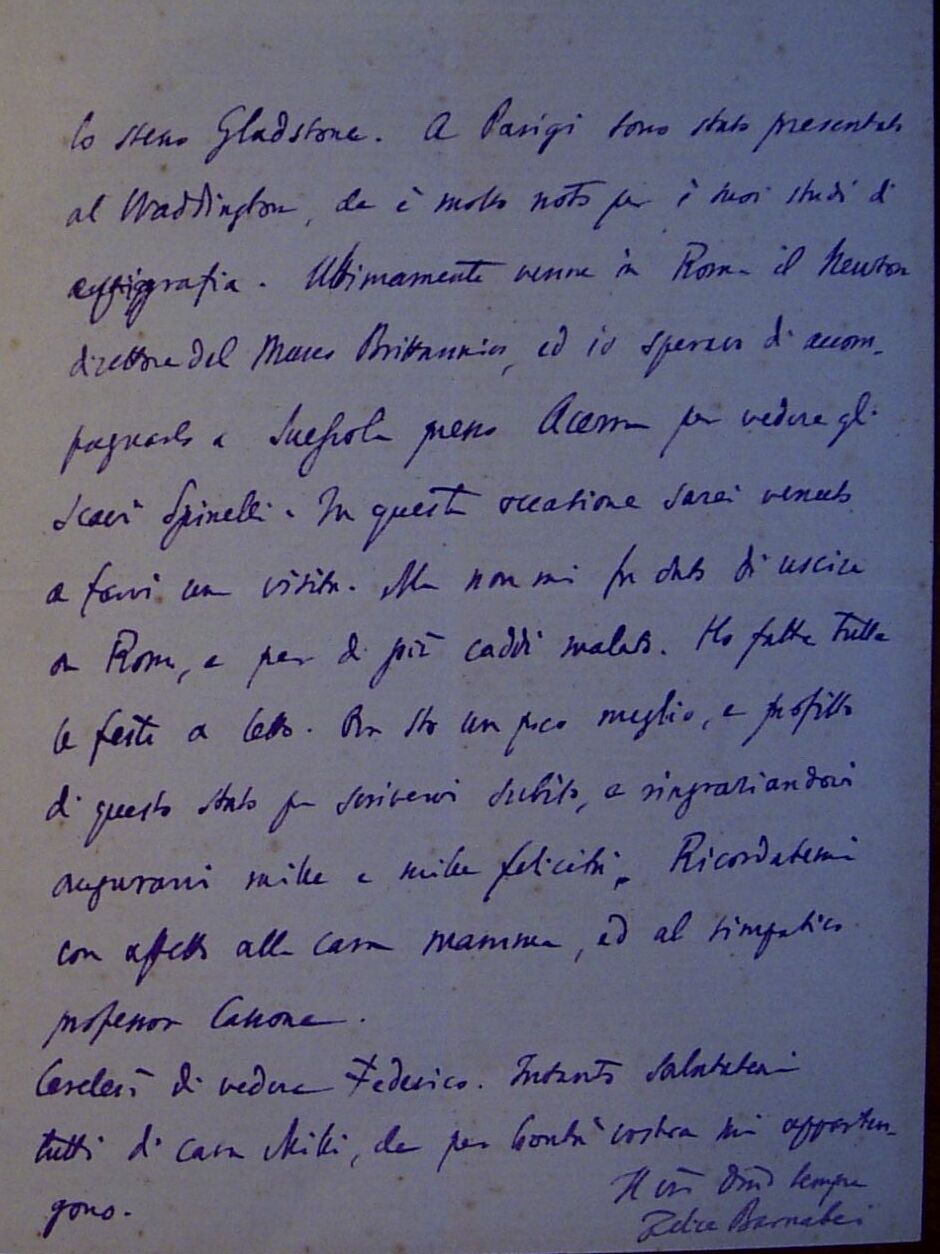 lo stesso Gladstone. A Parigi sono stato presentato
al Waddington, che è molto noto per i suoi studi di
epigrafia. Ultimamente venne in Roma il Newton
direttore del Museo Brittannico, ed io sperava di accom-
pagnarlo a Suessola presso Acerra per vedere gli
scavi Spinelli. In questa occasione sarei venuto
a farvi una visita. Ma non mi fu dato di uscire
da Roma, e per di più caddi malato. Ho fatto tutte
le feste a letto. Ora sto un poco meglio, e profitto
di questo stato per scrivervi subito, e ringraziandovi
augurarvi mille e mille felicità. Ricordatemi
con affetto alla cara mamma, ed al simpatico
professor Cassone.
Cercherò di vedere Federico. Intanto salutatemi
tutti di casa, che per bontà vostra mi apparten-
gono.
Il vostro sempre
Felice Barnabei